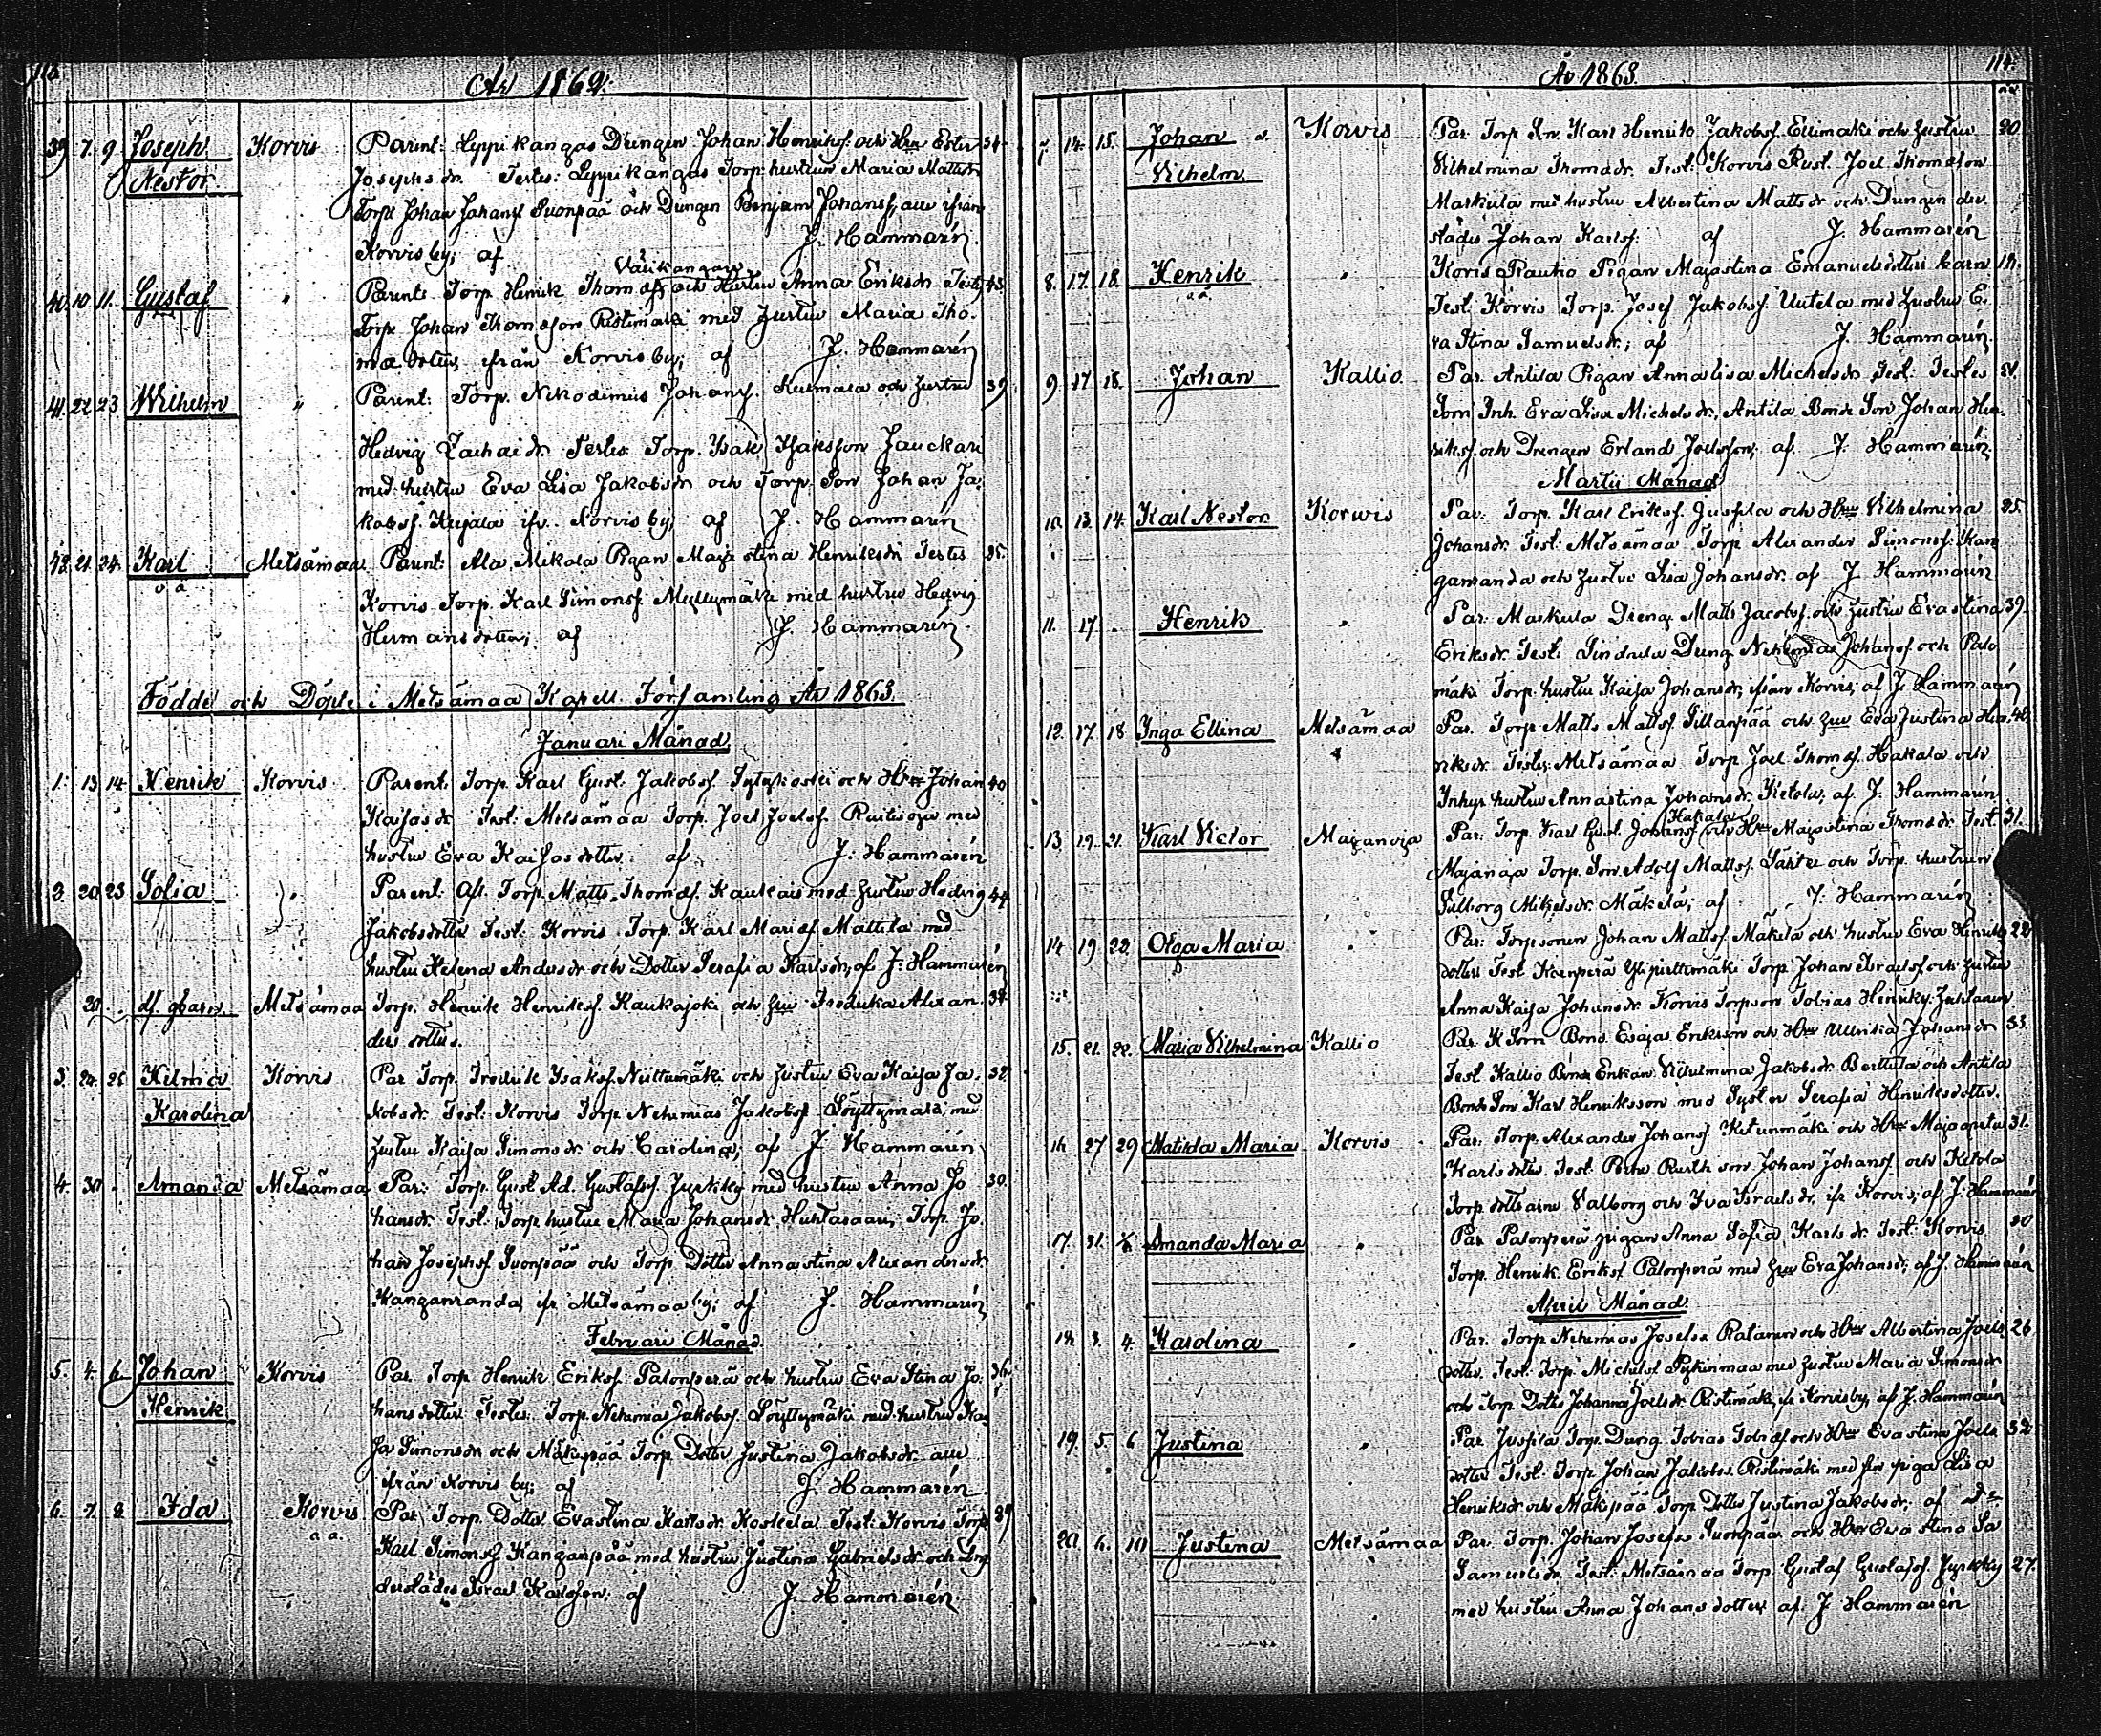 113.
År 1862.
39 7. 9. Joseph Korvis Parent: Leppikangas Drengen Johan Henriksf. och Hru Ester 34
Nestor Josephsdr. Testes: Leppikangas Torp. hustrun Maria Mattsdr
Torp. Johan Johansf Suonpää och Drengen Benjam Johansf, alle ifrån
Korvis by; af J. Hammarén.
Välikangas
40. 10. 11. Gustaf " Parent: Torp. Henrik Thomasf och Hustru Anna Eriksdr Test: 43.
Torp. Johan Thomasson Ristimäki med Hustru Maria Tho-
mædotter, ifrån Korvis by; af J. Hammarén
41. 22 23 Wilhelm " Parent: Torp. Nikodemus Johansf. och Hustru 39
Hedvig Zachaidr. Testes: Torp. Isak Isaksson
med hustru Eva Lisa Jakobsdr och Torp. Son Johan Ja-
kobsf. ifr. Korvis by; af J. Hammarén
42. 21. 24. Karl Metsämaa Parent: Ala Mikola Pigan Maja Stina Henriksdr Testes 25.
o ä Korvis Torp. Karl Simonsf. Myllymäki med hustru Hedvig
Hermansdotter; af J. Hammarén.
Födde och Döpte i Metsämaa Kapell Församling År 1863.
Januari Månad
1. 13 14 Henrik Korvis Parent: Torp. Karl Gust. Jakobsf. och Hru Johan 40
Kajsadr Test: Metsämaa Torp. Joel Joelsf. Ruitioja med
hustru Eva Kaisasdotter. af J. Hammarén
2. 20 23 Sofia " Parent: Afl. Torp. Matts Thomasf. med Hustru Hedvig 44
Jakobsdotter Test: Korvis Torp. Karl Mariasf Mattila med
hustru Helena Andersdr och Dotter Serafia Karlsdr, af J. Hammarén
20. df. gbarn. Metsämaa Torp. Henrik Henriksf. Kaukajoki och Hru Fredrika Alexan- 34
dersdotter.
3. 24. 25 Hilma Korvis Par Torp. Fredrik Isaksf. Niittumäki och Hustru Eva Kajsa Ja- 32
Karolina kobsdr. Test: Korvis Torp. Nehemias Jakobsf Löyttymäki, med
Hustru Kajsa Simonsdr och Carolina; af J. Hammarén
4. 30 . Amanda Metsämaa Par: Torp. Gust. Ad. Gustafsf. Jyrkky med hustru Anna Jo 30.
hansdr. Test: Torp. hustru Maria Johansdr Huhtasaari, Torp. Jo-
han Josephsf Suonpää och Torp Dotter Annastina Alexandersdr
Kanganranda, ifr Metsämaa by; af J. Hammarén
Februari Månad.
5. 4. 6 Johan Korvis Par. Torp Henrik Eriksf. Palonperä och hustru Eva Stina Jo- 36
Henrik hansdotter Testes: Torp. Nehemias Jakobsf. Löyttymäki med hustru Kaj-
sa Simonsdr och Mäkipää Torp Dotter Justina Jakobsdr alle
ifrån Korvis by; af J. Hammarén.
6. 7. 8 Ida Korvis Par. Torp. Dotter Evastina Karlsdr Koskela Test: Korvis Torp 29
o ä. Karl Simonsf Kanganpää med hustru Justina Gabrielsdr och Drg
derstädes Israel Karlsson; af J. Hammarén.
År 1863.
114.
7. 14. 15. Johan Korvis Par Torp. Sn. Karl Henrik Jakobsf. Ellimäki och Hustru 20
Vilhelm. Vilhelmina Thomædr. Test: Korvis Rust. Joel Thomasson
Markula med hustru Albertina Mattsdr och Drengen der-
städes Johan Karlsf. af J. Hammarén
8. 17. 18. Henrik " Koris Rautio Pigan Majastina Emanuelsdotters barn
o ä Test: Korvis Torp. Josef Jakobsf. Uutela med Hustru E-
va Stina Samuelsdr.; af J. Hammarén.
9. 17 18. Johan Kallio Par. Antila Pigan Annalisa Michelsdr. Test: Testes
Sorri Inh. Eva Lisa Michelsdr., Antila Bonde Son Johan Hen-
riksf. och Drengen Erland Joelsson; af J. Hammarén.
Martii Månad
10. 13. 14. Karl Nestor Korwis Par: Torp. Karl Eriksf. Jussila och Hru Vilhelmina 25.
Johansdr. Test: Metsämaa Torp Alexander Simonsf. Kan-
ganranda och Hustru Lisa Johansdr. af J. Hammarén
11. 17 . Henrik " Par: Markula Dreng. Matts Jacobsf. och Hustru Evastina 39.
Eriksdr. Test: Dreng Nehemias Johansf och Palo
mäki Torp. hustru Kajsa Johansdr, ifrån Korvis, af J. Hammarén
12. 17. 18 Inga Ellina Metsämaa Par. Torp. Matts Mattsf Sillanpää och Hru Eva Justina Hen- 42
riksdr. Testes: Metsämaa Torp Joel Thomasf. Hakala och
Inhys hustru Annastina Johansdr. ; af J. Hammarén
Hakala
13. 19. 21. Karl Victor Majanoja Par. Torp. Karl Gust. Johansf och Hru Majastina Thomædr. Test: 31.
Majanoja Torp. Son Adolf Mattsf. och Torp. hustrun
Mikelsdr. Mäkelä; af J. Hammarén
14 19 22. Olga Maria. " Par: Torpsonen Johan Mattsf. Mäkelä och hustru Eva Henriks 22
dotter Test: Ylipirttimäki Torp. Johan Israelsf och Hustru
Anna Kajsa Johansdr. Korvis Torpson Tobias Henriksf.
15. 21. 22. Maria Vilhelmina Kallio Par. Sorri Bond. Esajas Eriksson och Hru Ullrika Johansdr 33.
Test. Kallio Bonde Enkan Vilhelmina Jakobsdr. Berttula och Antila
Bonde Son Karl Henriksson med Syster Serafia Henriksdotter.
16. 27 29 Matilda Maria Korvis Par: Torp. Alexander Johansf Ketunmäki och Hru Majagreta 31.
Karlsdotter. Test: Johan Johansf. och Ketola
Torp. döttrarne Valborg och Eva Israelsdr, ifr Korvis; af J. Hammarén
17. 31. Amanda Maria " Par Palonperä pigan Anna Sofia Karlsdr. Test: Korvis 20
Torp. Henrik Eriksf. Palonperä med Hru Eva Johansdr; af J. Hammarén
April Månad.
18. 3. 4. Karolina " Par. Torp Nehemias Josefss. Ratanen och Hru Albertina Joels 26
dotter. Test. Torp. Michelsf. med Hustru Maria Simonsdr
och Torp. Dotter Johanna Joelsdr. Ristimäki, fr Korvis by, af J. Hammarén
19. 5. 6 Justina " Par Jussila Torp. Dreng Tobias Tobiasf och Hru Evastina Joels 32
dotter Test: Torp. Johan Jakobss. Ristimäki med piga Lisa
Henriksdr och Mäkipää Torp. Dotter Justina Jakobsdr; af
20. 6. 10 Justina Metsämaa Par. Torp. Johan Josefss Suonpää och Hru Eva Stina Sa
Samuelsdr. Test: Metsämaa Torp. Gustaf Gustafsf. Jyrkky 27.
med hustru Anna Johansdotter, af J. Hammarén